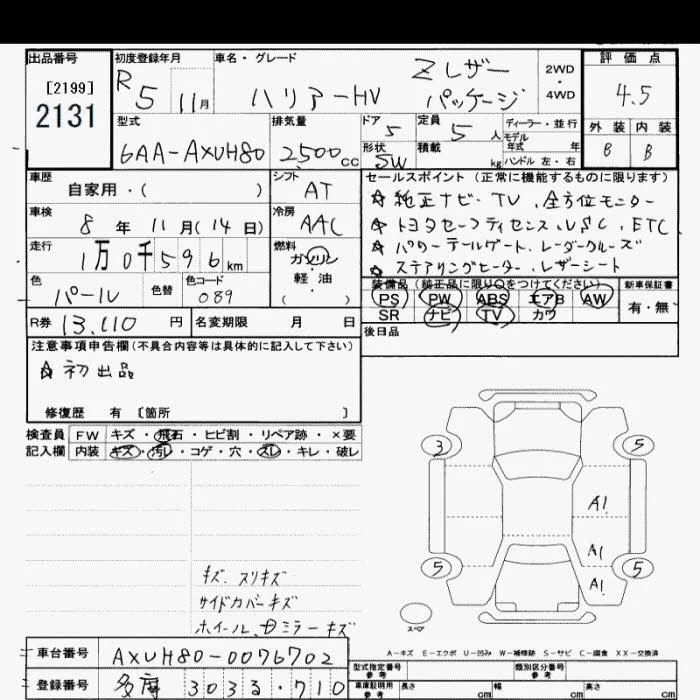 出品番号 初度登録年月 車名・グレード 評価点
[2199]
2131
R 5 11月
ハリアーHV
Zレザー
パッケージ
2WD
・
4WD
4.5
外装 内装
B B
型式 排気量 ドア 定員 ディーラー・並行
6AA-AXUH80 2500cc 5 5人 モデル
形状 積載 年式 年
SW kg ハンドル 左・右
車歴 シフト セールスポイント (正常に機能するものに限ります)
自家用・( ) AT
☆ 純正ナビ・TV、全方位モニター
車検 冷房
8年11月(14日) AAC
☆ トヨタセーフティセンス、USC、ETC
走行 燃料
1万0千596km ガソリン
・
軽油
( )
☆ パワーテールゲート、レーダークルーズ
☆ ステアリングヒーター、レザーシート
色 色替 色コード
パール 089
装備品 (純正品に限り○をつけてください) 新車保証書
PS PW ABS エアB AW 有・無
SR ナビ TV カワ
R券 13,110円 名変期限 月 日
後日品
注意事項申告欄(不具合内容等は具体的に記入して下さい)
☆ 初出品
修復歴 有 〔箇所 〕
検査員 FW キズ・飛石・ヒビ割・リペア跡・×要
記入欄 内装 キズ・汚レ・コゲ・穴・スレ・キレ・破レ
3 5
A1
A1
5 A1 5
スペア
キズ、スリキズ
サイドカバーキズ
ホイール、ミラーキズ
A-キズ E-エクボ U-凹み W-補修跡 S-サビ C-腐食 XX-交換済
車台番号 AXUH80-0076702
登録番号 多摩 303 る ・710
型式指定番号 参考 類別区分番号 参考
車庫証明用 参考 長さ cm 幅 cm 高さ cm